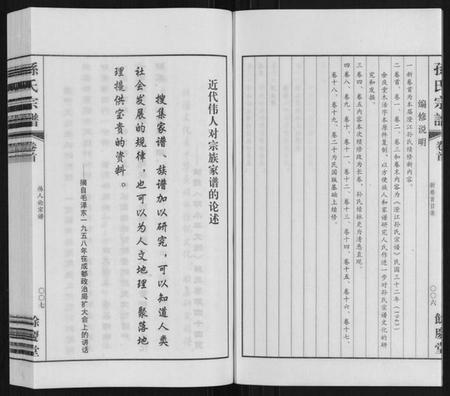 孫氏宗譜
卷首
編修说明
一 新卷首为本届澄江孙氏续修新内容。
二 卷首、卷一、卷二、卷三和卷末内容为《澄江孙氏宗谱》民国三十二年（1943）
余庆堂木活字本原件复制，以方便族人和家谱研究人氏作进一步对孙氏宗谱文化的研
究和发掘。
三 卷四、卷五内容本次续修改为长卷，孙氏续脉更为清悉直观。
四 卷八、卷九、卷十、卷十一、卷十二、卷十三、卷十四、卷十五、卷十六、卷十七、
卷十八、卷十九、卷二十为民国版基础上续修。
新卷首目录
〇〇六
餘慶堂
近代伟人对宗族家谱的论述
搜集家谱、族谱加以研究，可以知道人类
社会发展的规律，也可以为人文地理、聚落地
理提供宝贵的资料。
——摘自毛泽东一九五八年在成都政治局扩大会上的讲话
孫氏宗譜
卷首
伟人论宗谱
〇〇七
餘慶堂